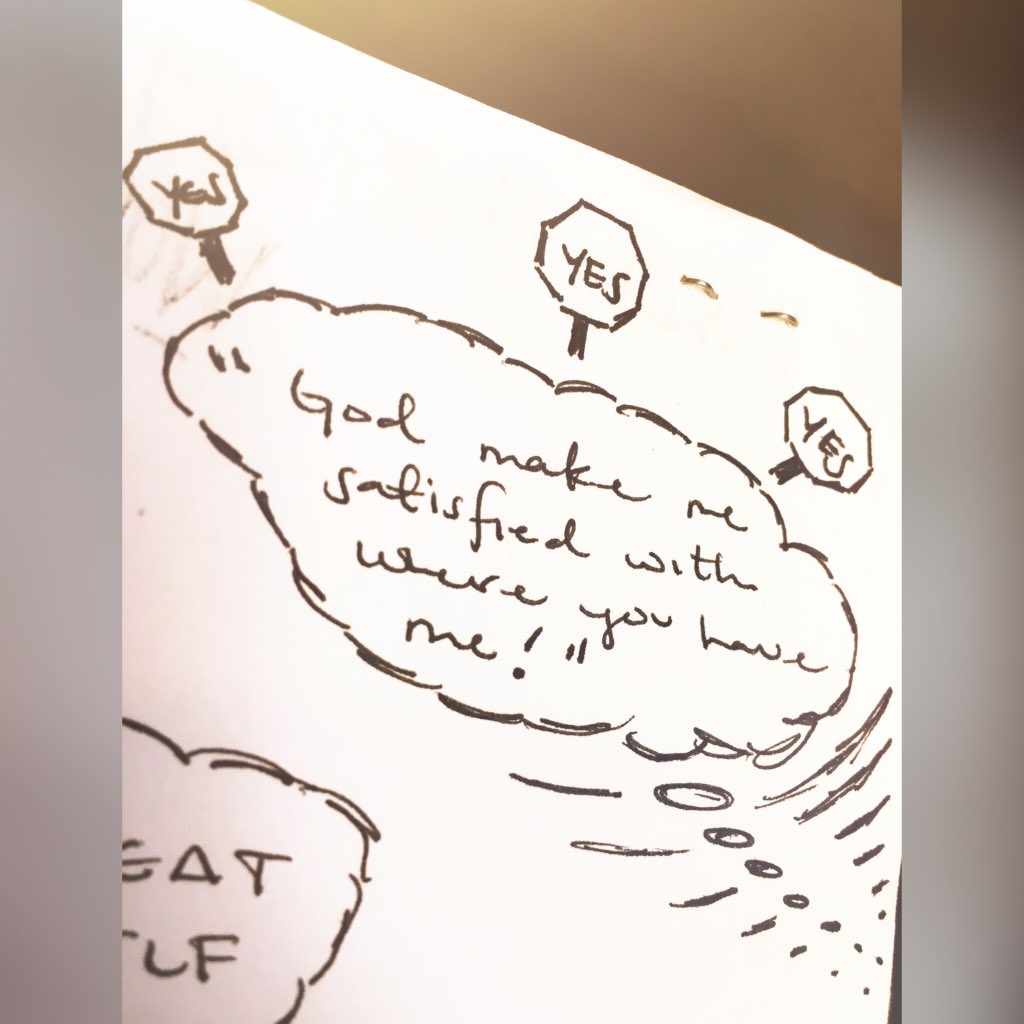 YES
YES
YES
" God make me
satisfied with
where you have
me! "
EAT
LF